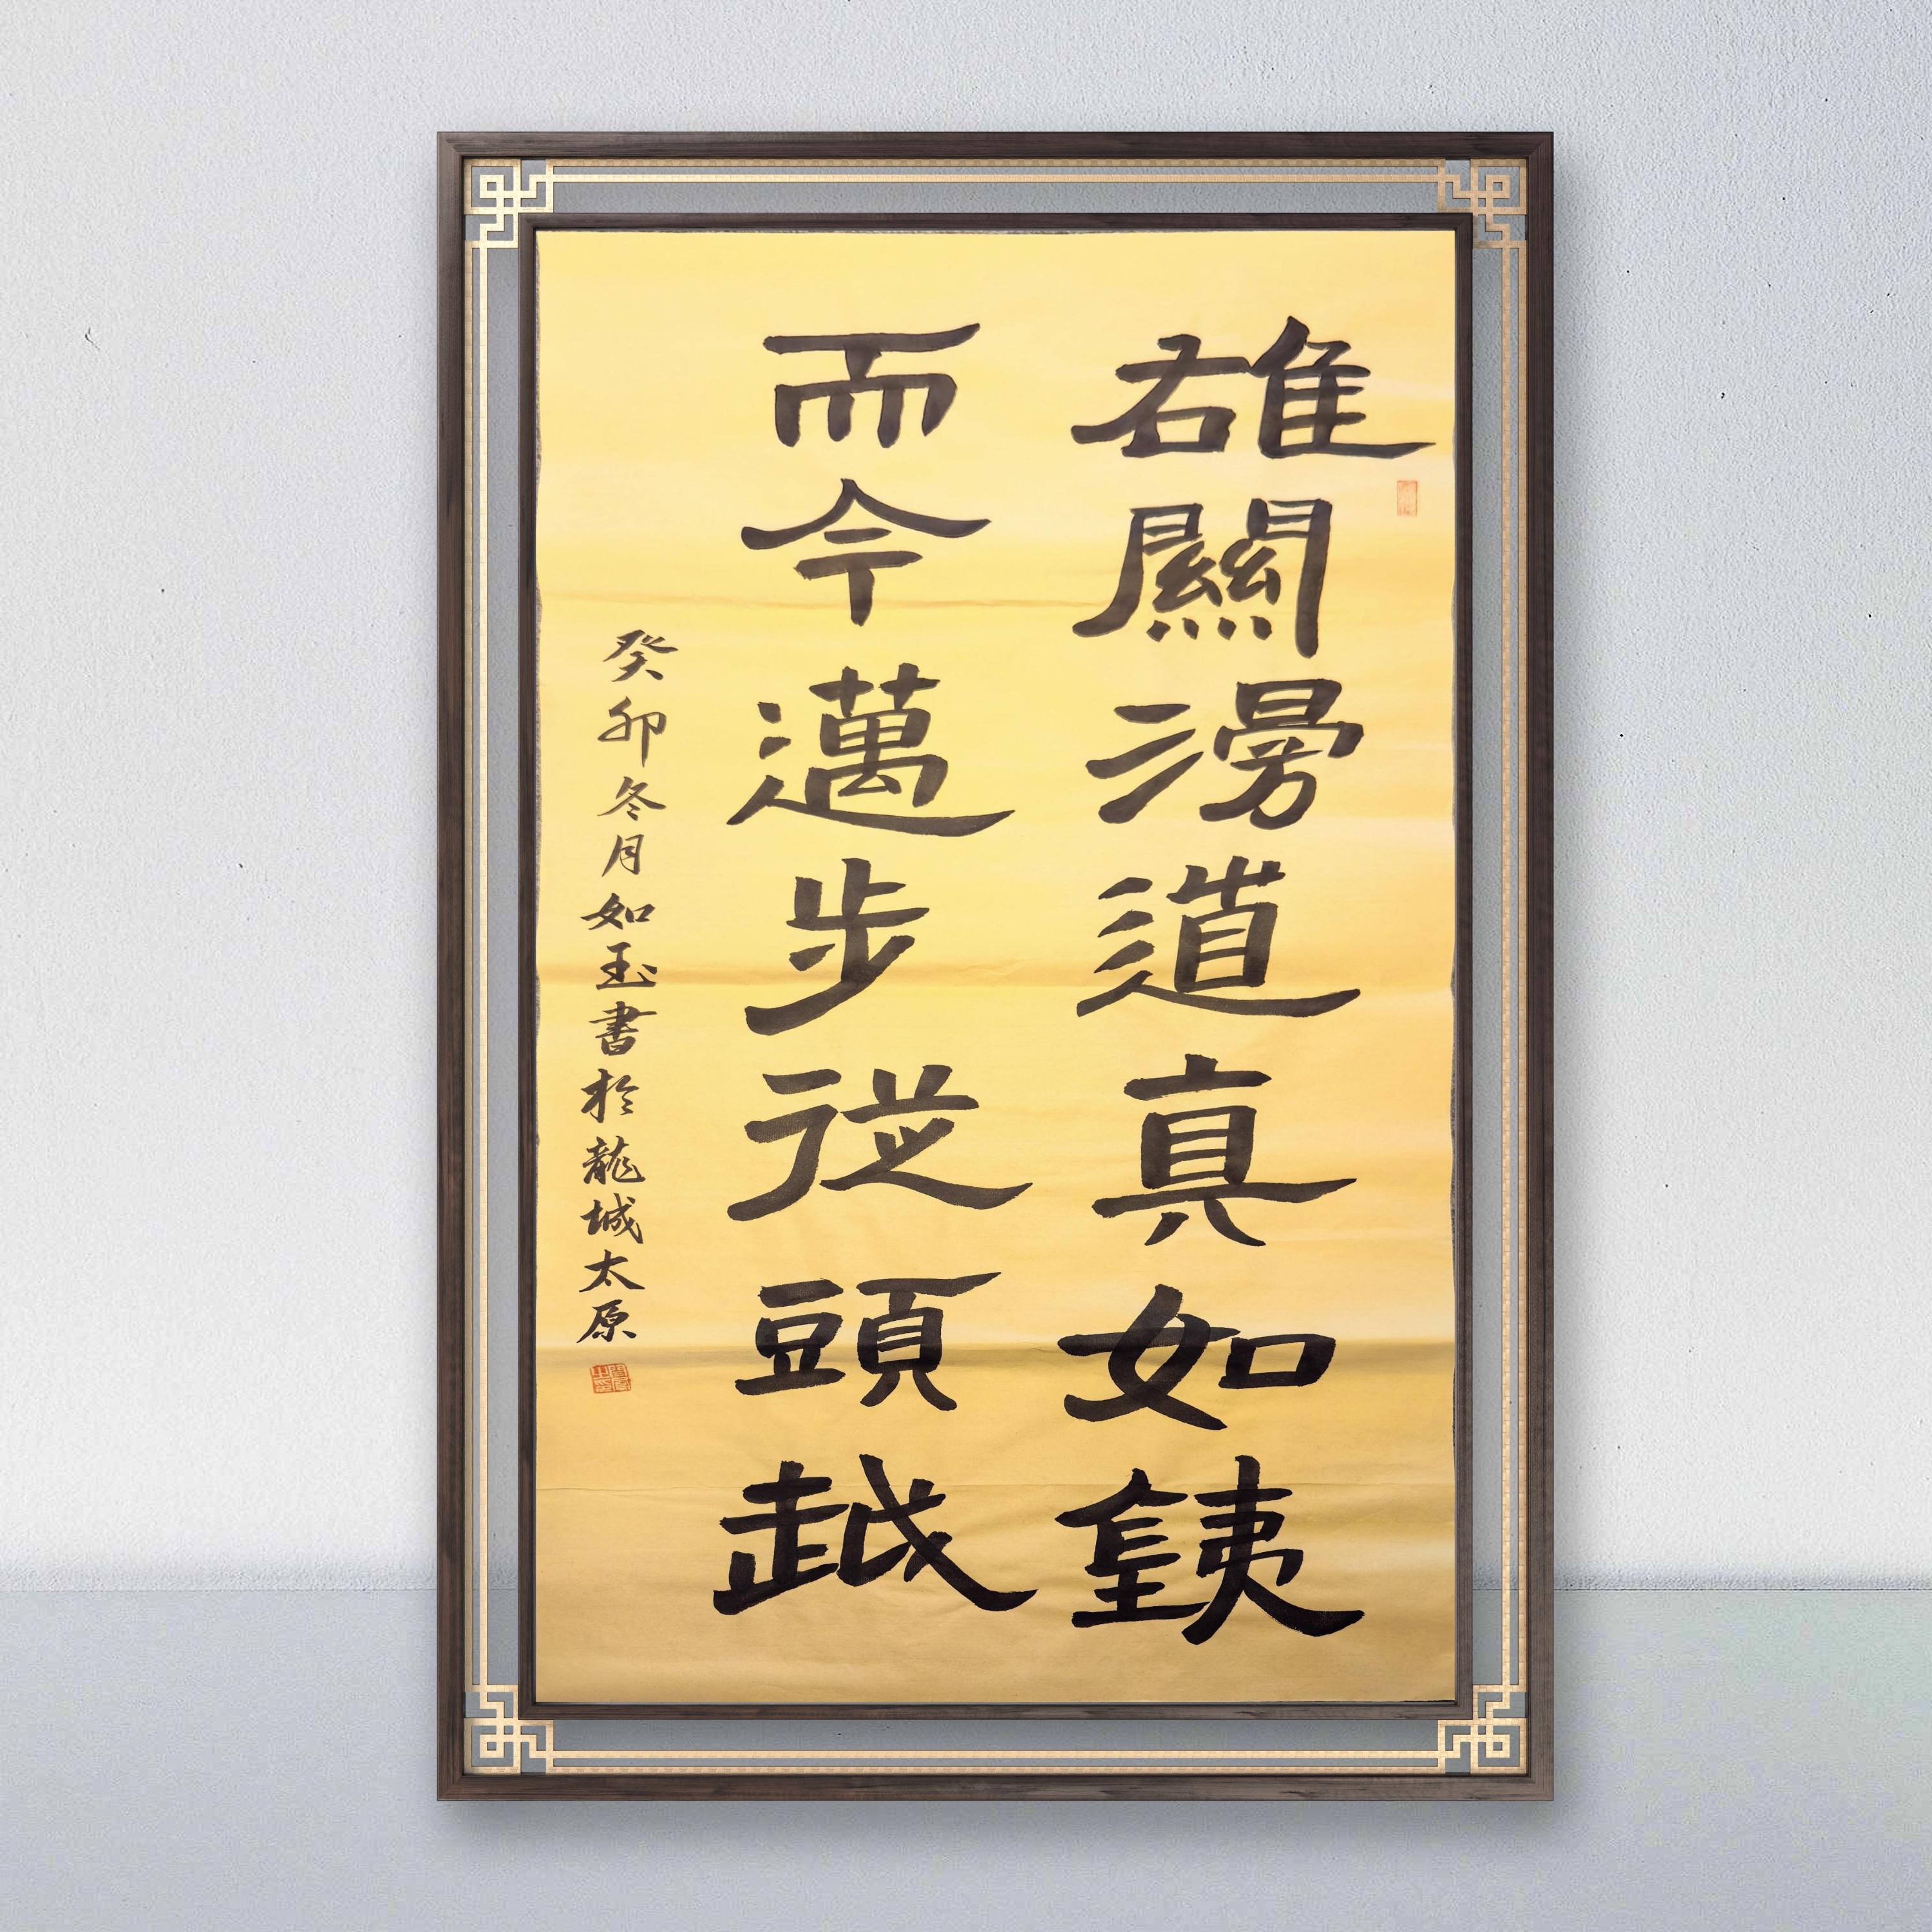 雄關漫道真如鐵
而今邁步從頭越
癸卯冬月如玉書於龍城太原